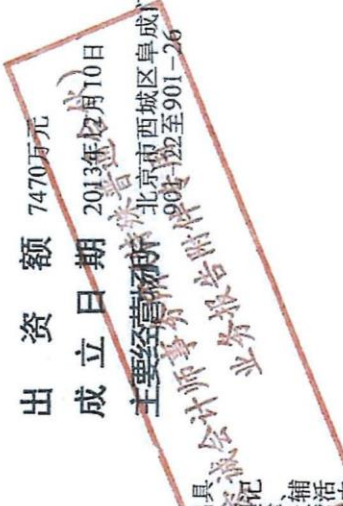 出资额 7470万元
成立日期 2013年12月10日
主要经营场所 北京市西城区阜成
901-22至901-26
诚会计师事务所(特殊普通合伙)
业务报告附件专用
具
记
、辅
活